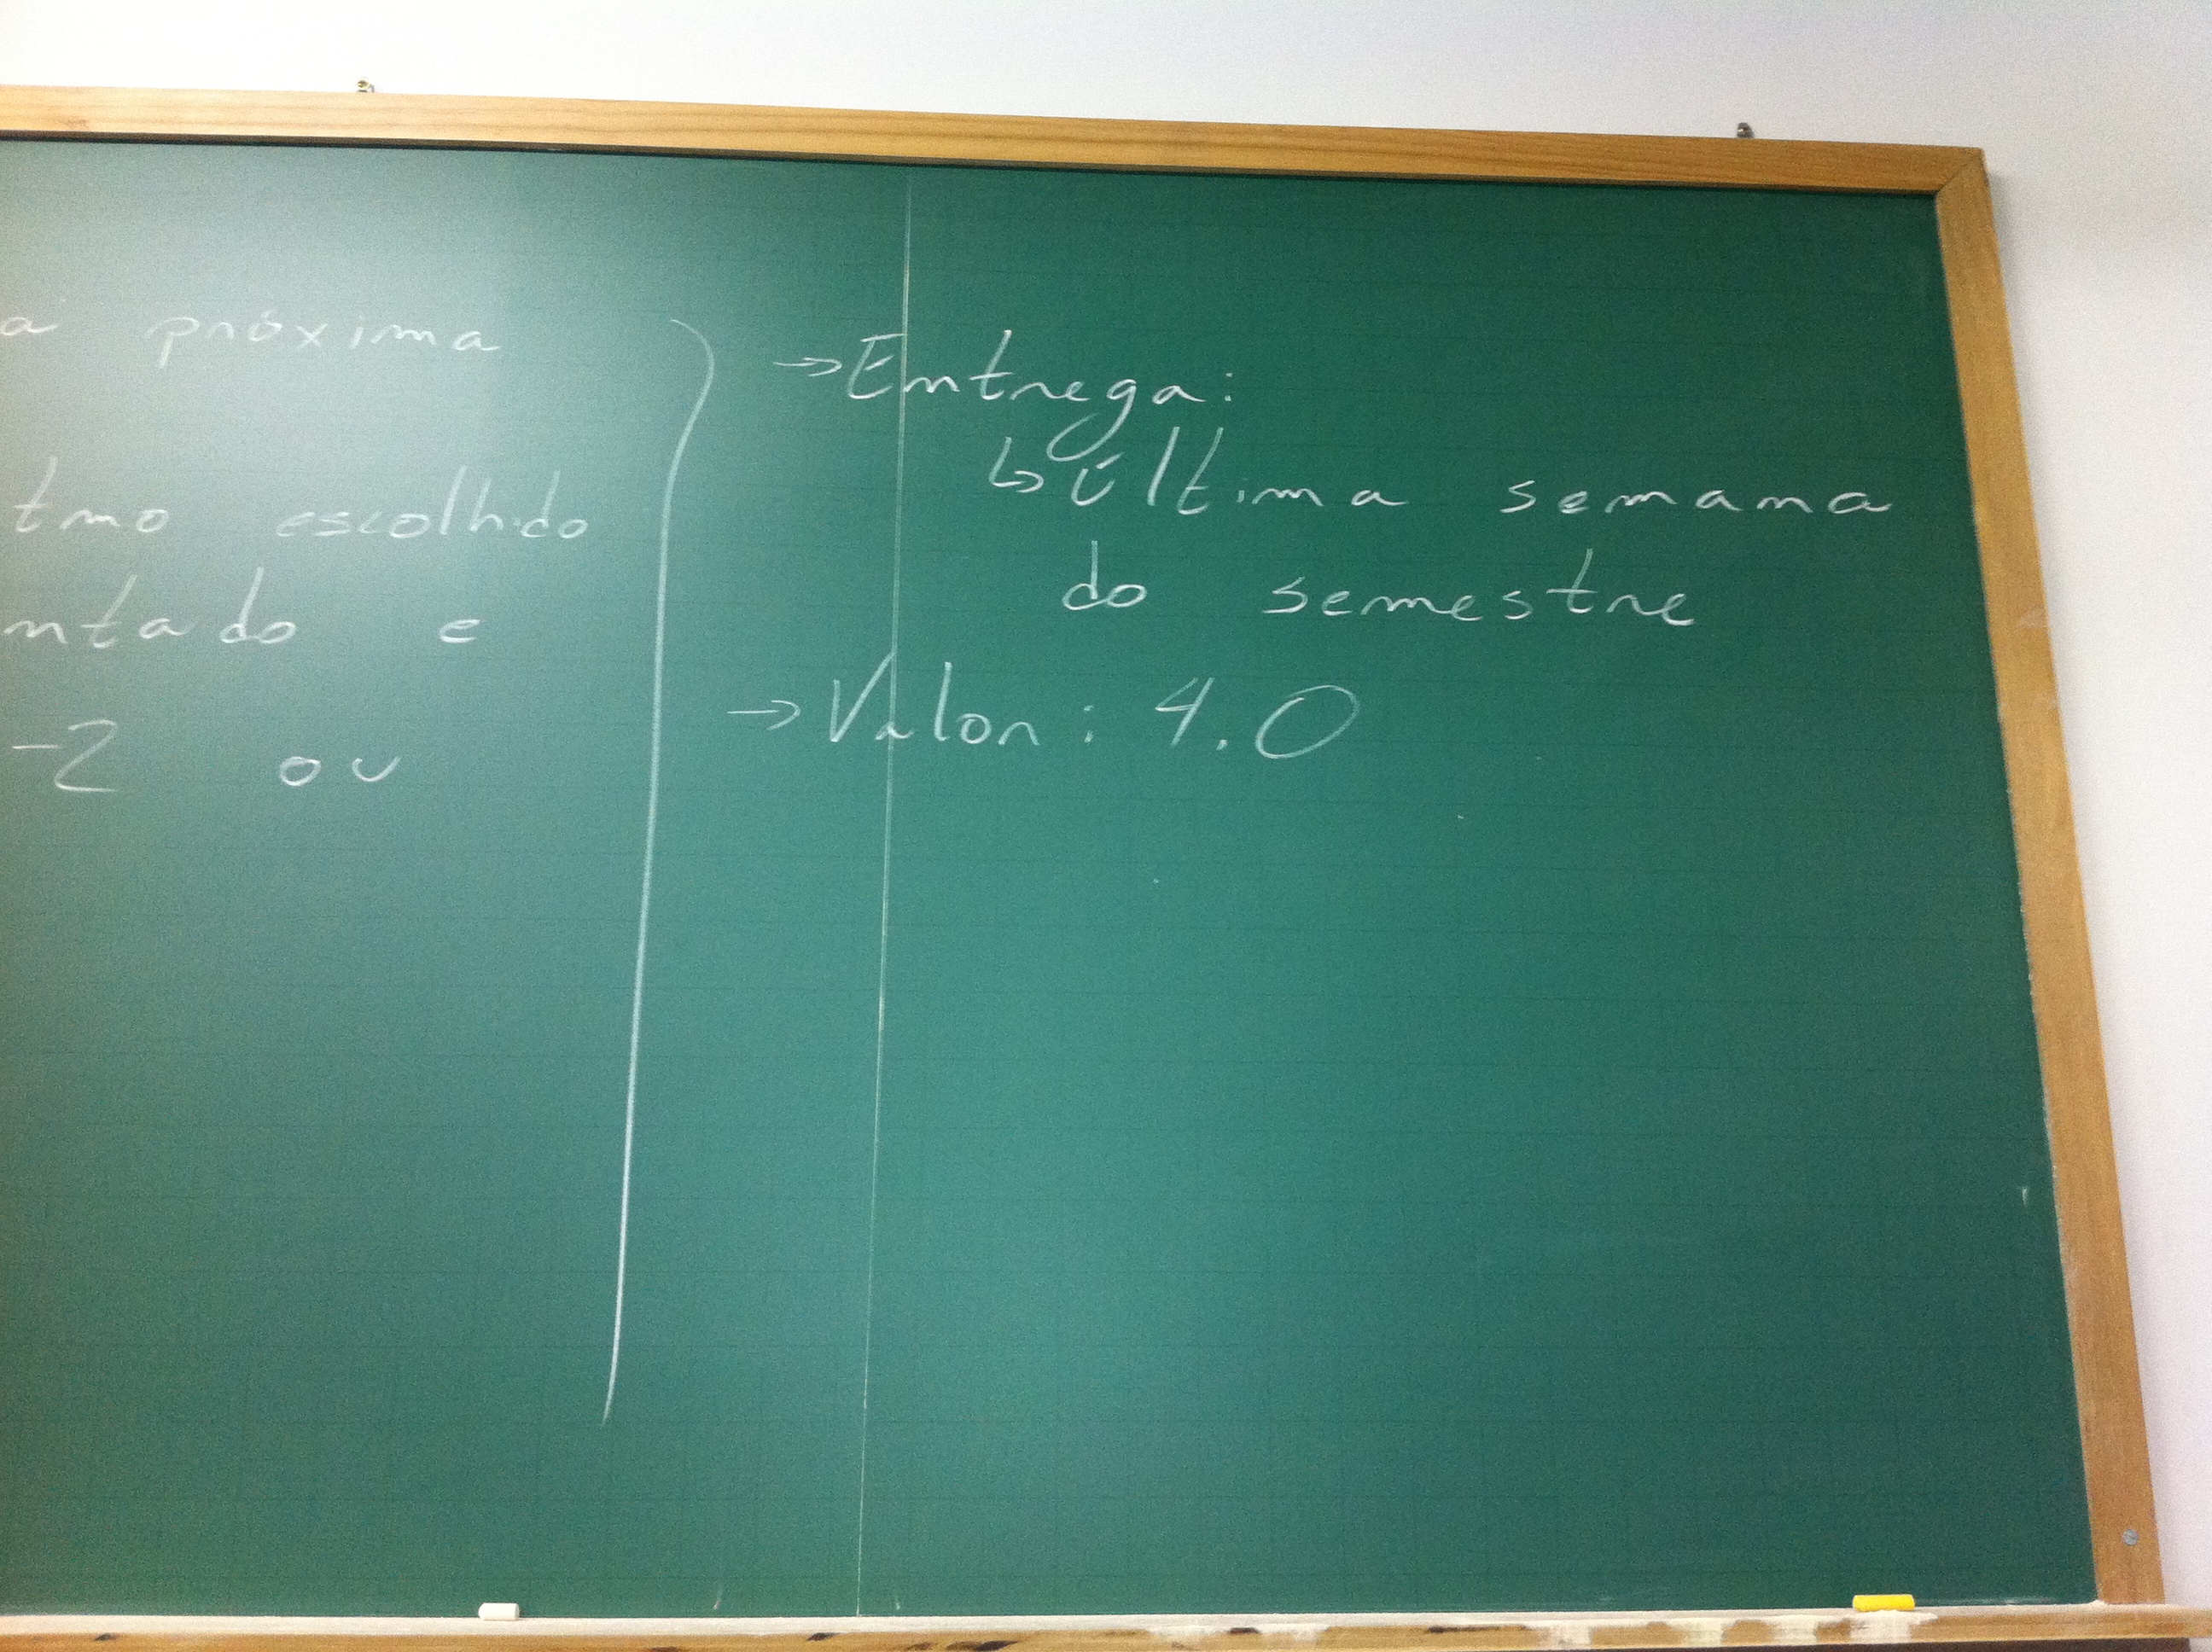 a próxima
tmo escolhido
ntado e
-2 ou
→Entrega:
↳Última semana
do semestre
→Valor: 4.0